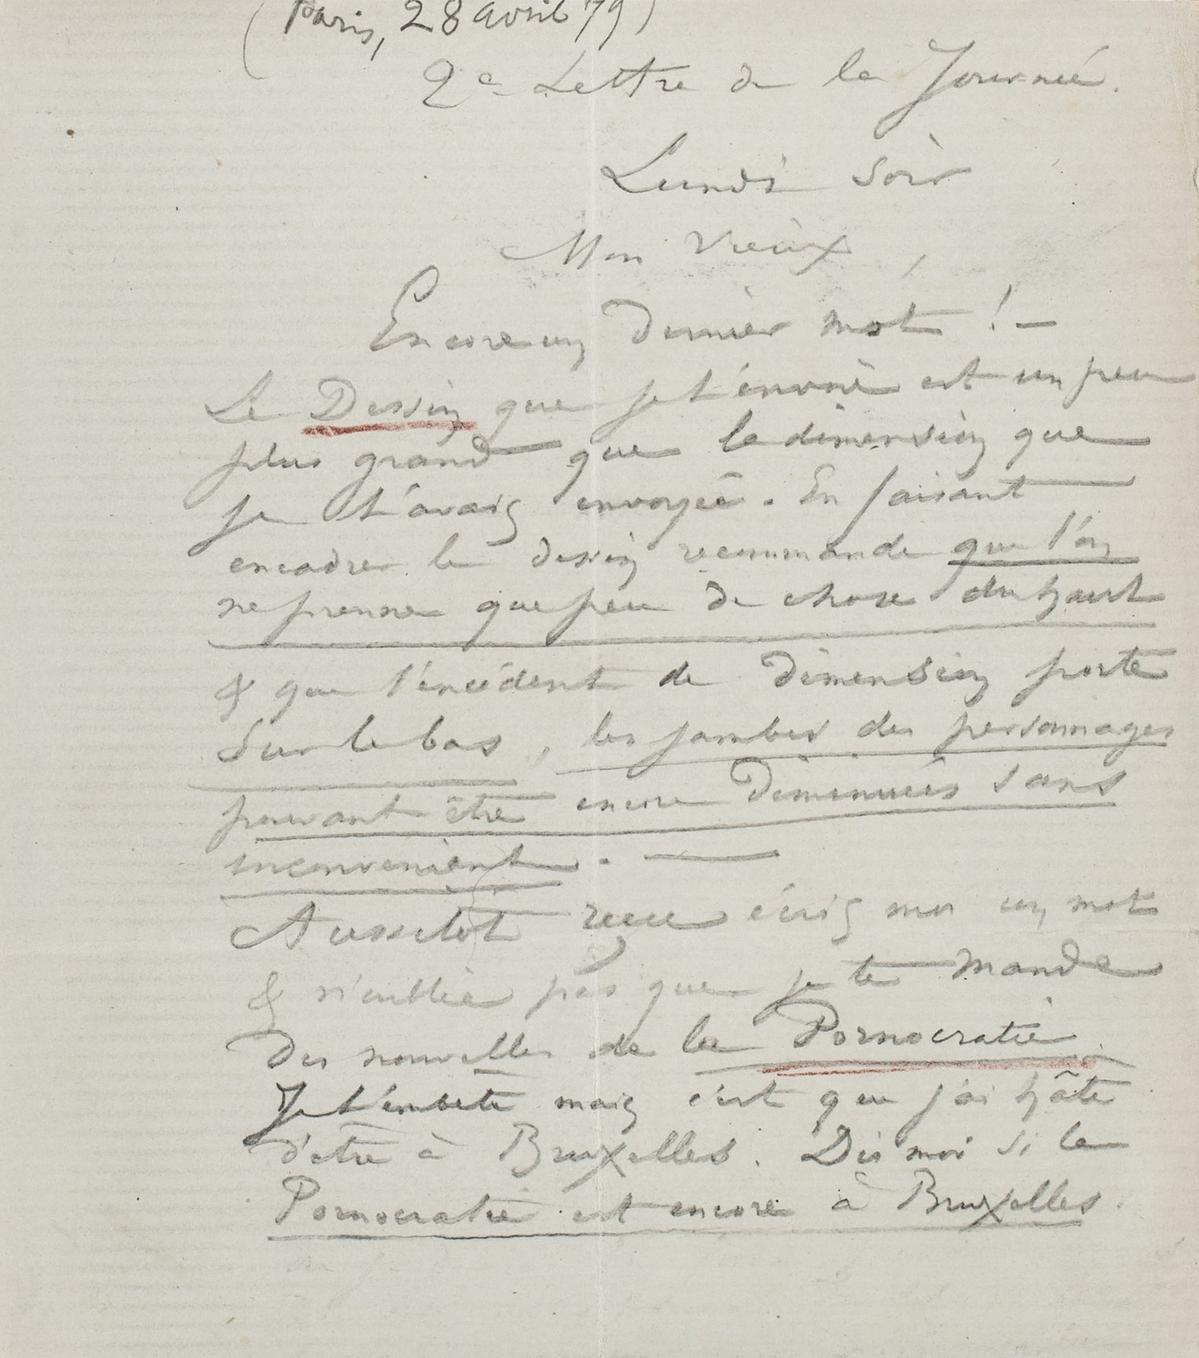 (Paris, 28 avril 79)
2e Lettre de la Journée.
Lundi soir
Mon Vieux,
Encore un dernier mot ! —
Le Dessin que je t'envoie est un peu
plus grand que la dimension que
je t'avais envoyée. En faisant
encadrer le dessin recommande que l'on
ne prenne que peu de chose du haut
& que l'excédent de dimension porte
sur le bas, les jambes des personnages
pouvant être encore diminuées sans
inconvenient. —
Aussitot reçu écris moi un mot
& n'oublie pas que je te demande
Des nouvelles de la Pornocratie.
Je t'embete mais c'est que j'ai hâte
d'etre à Bruxelles. Dis moi si la
Pornocratie est encore à Bruxelles.